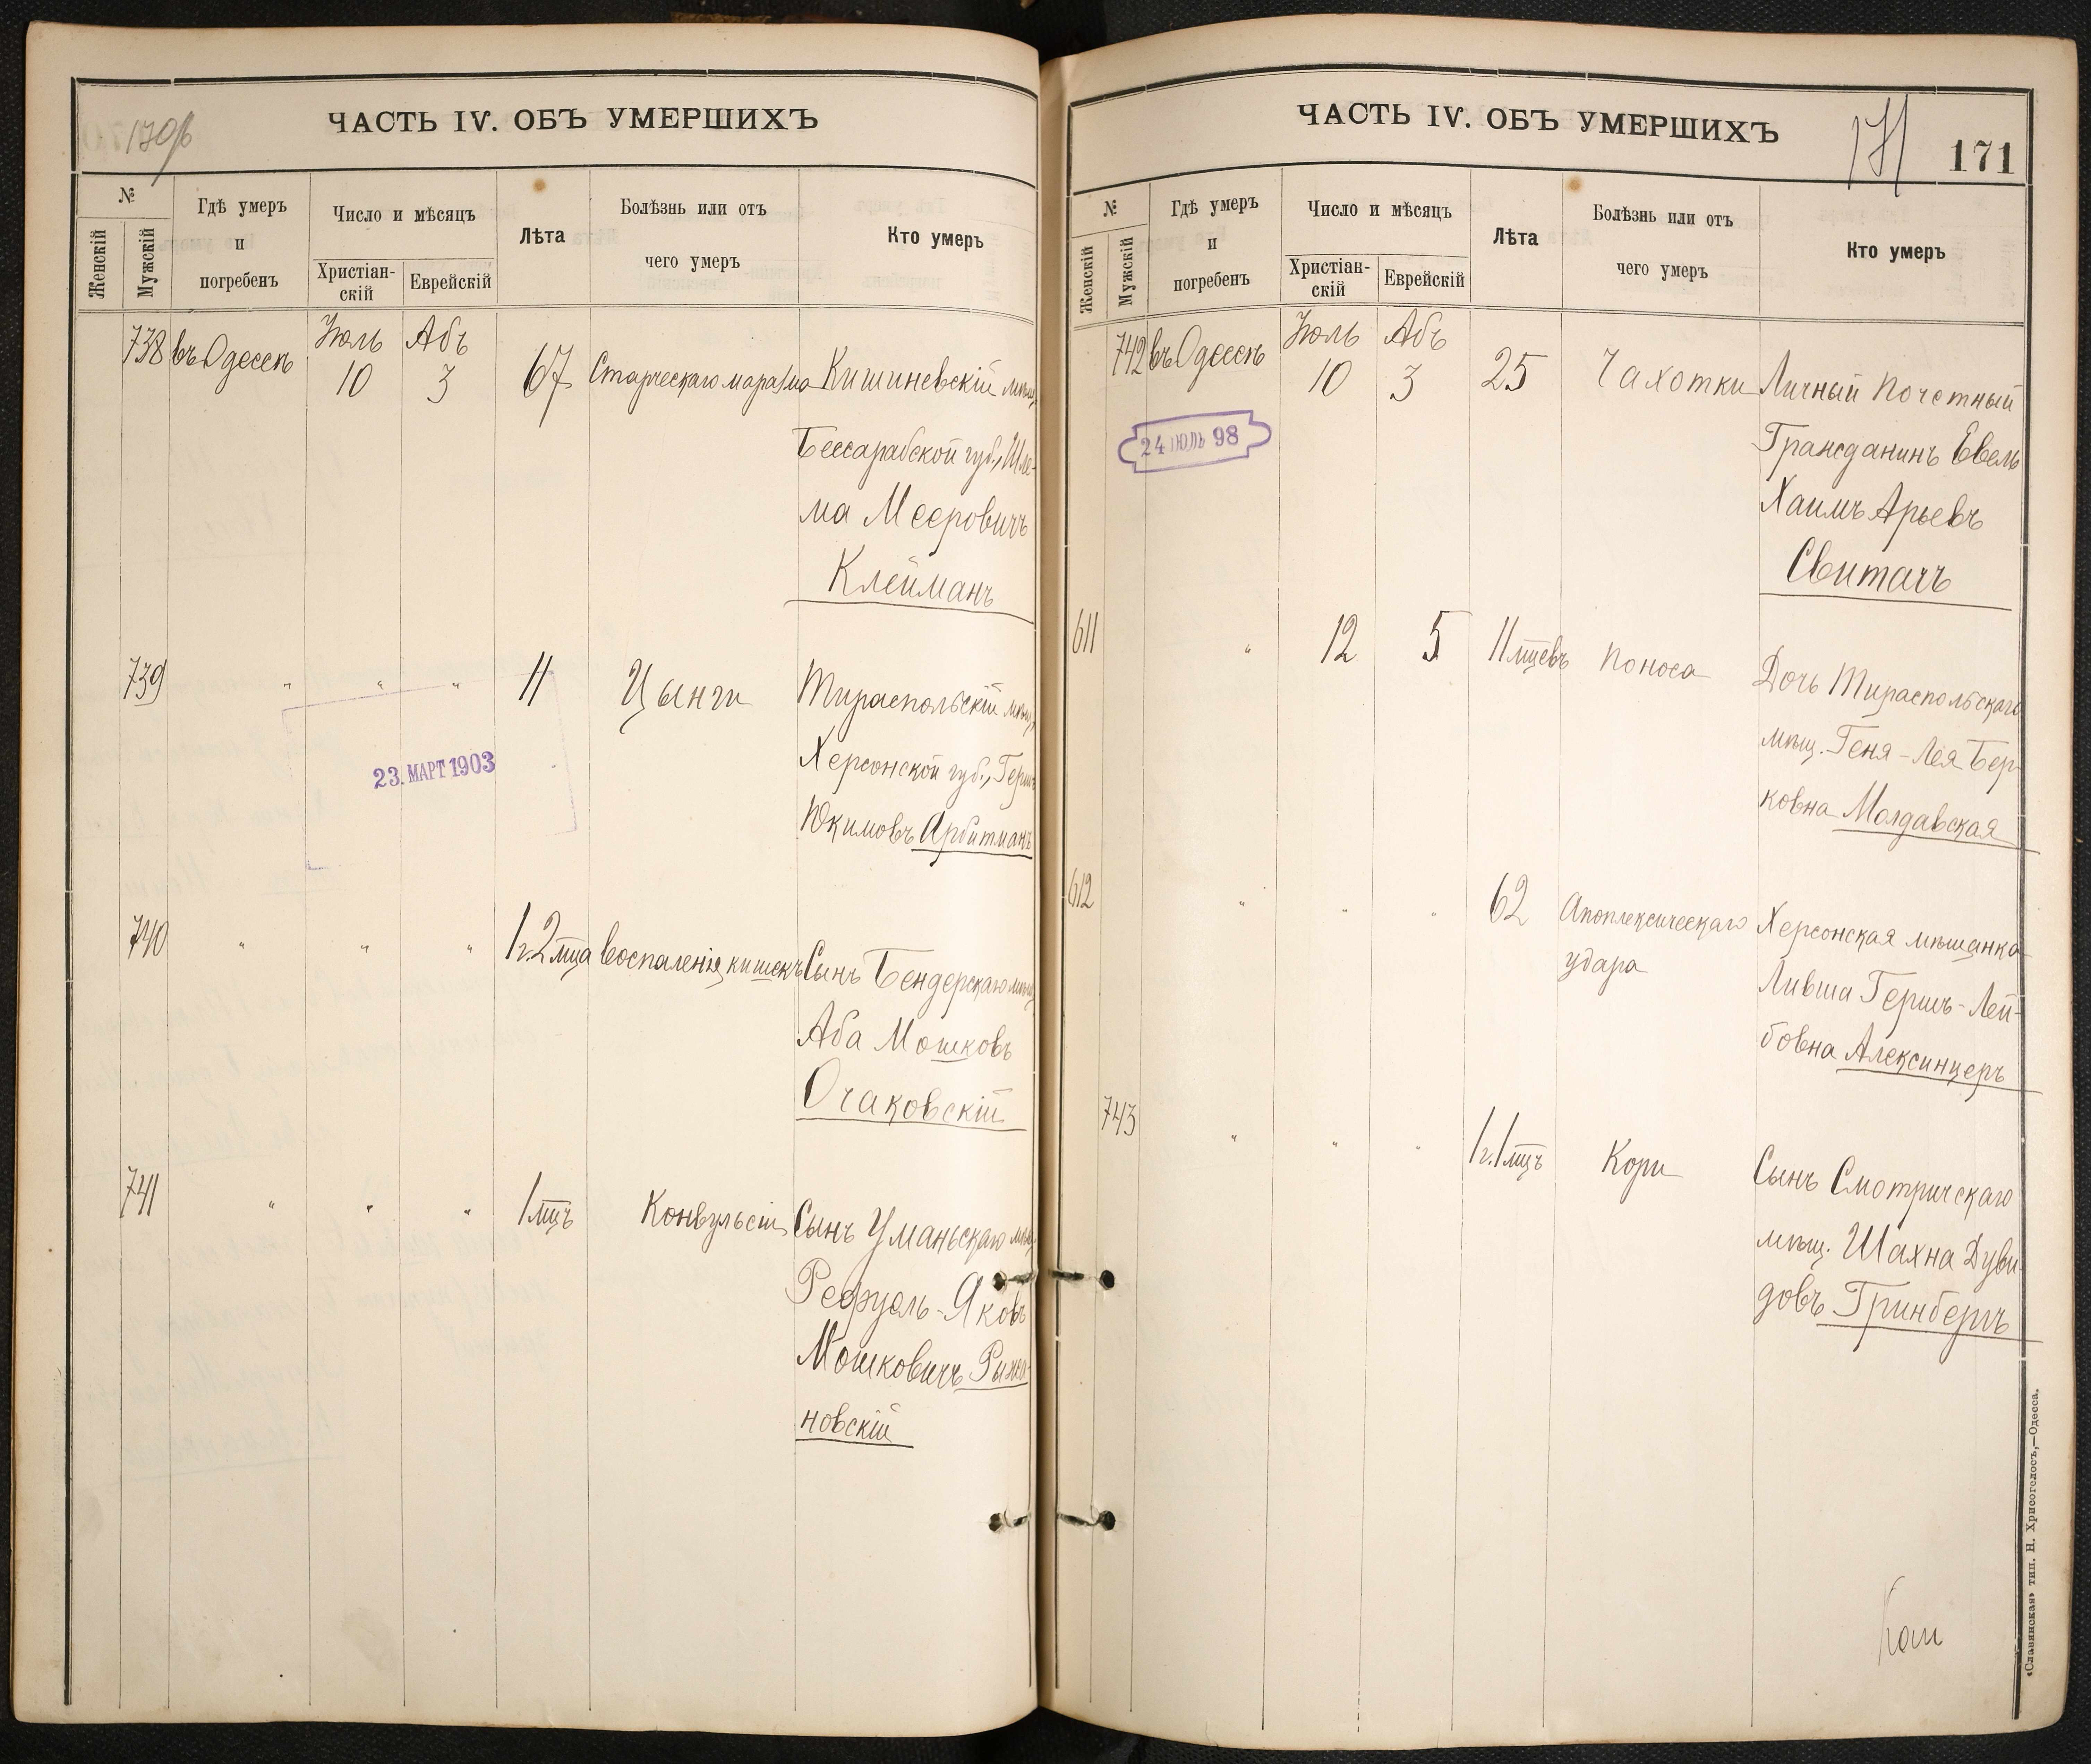 170об
ЧАСТЬ IV. ОБЪ УМЕРШИХЪ
№
Женскій
Мужскій
Гдѣ умеръ
и
погребенъ
Число и мѣсяцъ
Христіан-
скій
Еврейскій
Лѣта
Болѣзнь или отъ
чего умеръ
Кто умеръ
738 въ Одессѣ Іюль 10 Абъ 3 67 Старческаго маразма Кишиневскій мѣщ.
Бессарабской губ., Шле-
ма Мееровичъ
Клейманъ
739 " " " 11 Цынги Тираспольскій мѣщ.
Херсонской губ., Герш
Юкимовъ Арбитманъ
23. МАРТ 1903
740 " " " 1 г. 2 мца Воспаленія кишекъ Сынъ Бендерскаго мѣщ.
Аба Мошковъ
Очаковскій
741 " " " 1 мцъ Конвульсіи Сынъ Уманьскаго мѣщ.
Рефуель-Яковъ
Мошковичъ Рыжа-
новскій
ЧАСТЬ IV. ОБЪ УМЕРШИХЪ
171
171
№
Женскій
Мужскій
Гдѣ умеръ
и
погребенъ
Число и мѣсяцъ
Христіан-
скій
Еврейскій
Лѣта
Болѣзнь или отъ
чего умеръ
Кто умеръ
742 въ Одессѣ Іюль 10 Абъ 3 25 Чахотки Личный Почетный
Гражданинъ Евель
Хаимъ Арьевъ
Свитачъ
24 ІЮЛЬ 98
611 " 12 5 11 мцевъ Поноса Дочь Тираспольскаго
мѣщ. Геня-Лея Бер-
ковна Молдавская
612 " " " 62 Апоплексическаго Херсонская мѣщанка
удара Ливша Гершъ-Лей-
бовна Алексинцеръ
743 " " " 1 г. 1 мцъ Кори Сынъ Смотричскаго
мѣщ. Шахна Дуви-
довъ Гринбергъ
«Славянская» тип. Н. Хрисогелосъ,—Одесса.